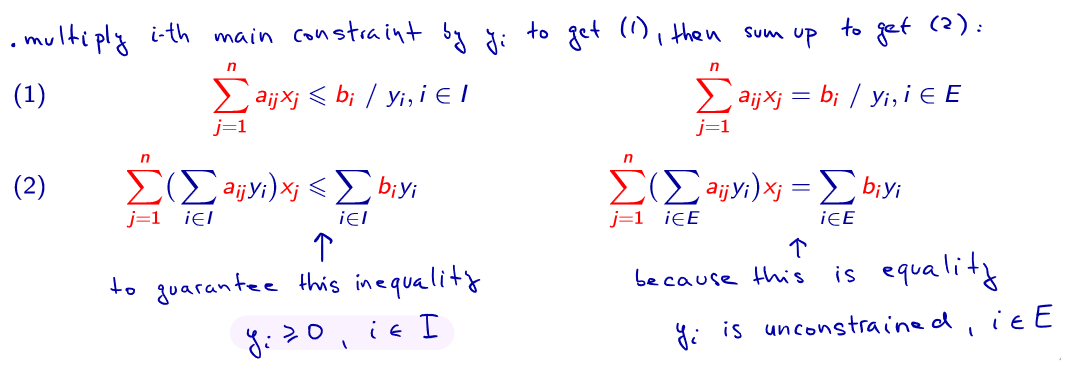 . multiply i-th main constraint by yᵢ to get (1), then sum up to get (2):
(1) ∑_{j=1}^{n} a_{ij}x_j ⩽ b_i / y_i, i ∈ I ∑_{j=1}^{n} a_{ij}x_j = b_i / y_i, i ∈ E
(2) ∑_{j=1}^{n} (∑_{i∈I} a_{ij}y_i)x_j ⩽ ∑_{i∈I} b_iy_i ∑_{j=1}^{n} (∑_{i∈E} a_{ij}y_i)x_j = ∑_{i∈E} b_iy_i
↑ ↑
to guarantee this inequality because this is equality
y_i ⩾ 0, i ∈ I y_i is unconstrained, i ∈ E